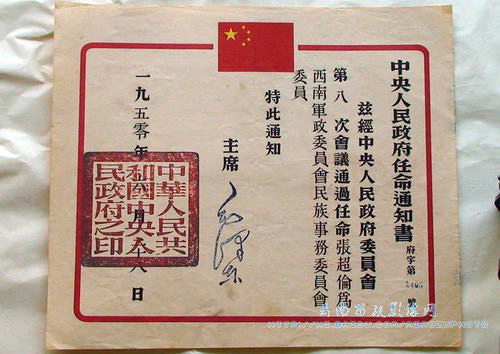 中央人民政府任命通知書
府字第 號
茲經中央人民政府委員會
第八次會議通過任命張超倫爲
西南軍政委員會民族事務委員會
委員
特此通知
主席
毛泽东
一九五零年 月 八日
中華人民共
和國中央人
民政府之印
云南苗族影像网
HTTP://HI.BAIDU.COM/MIAOZUPHOTO